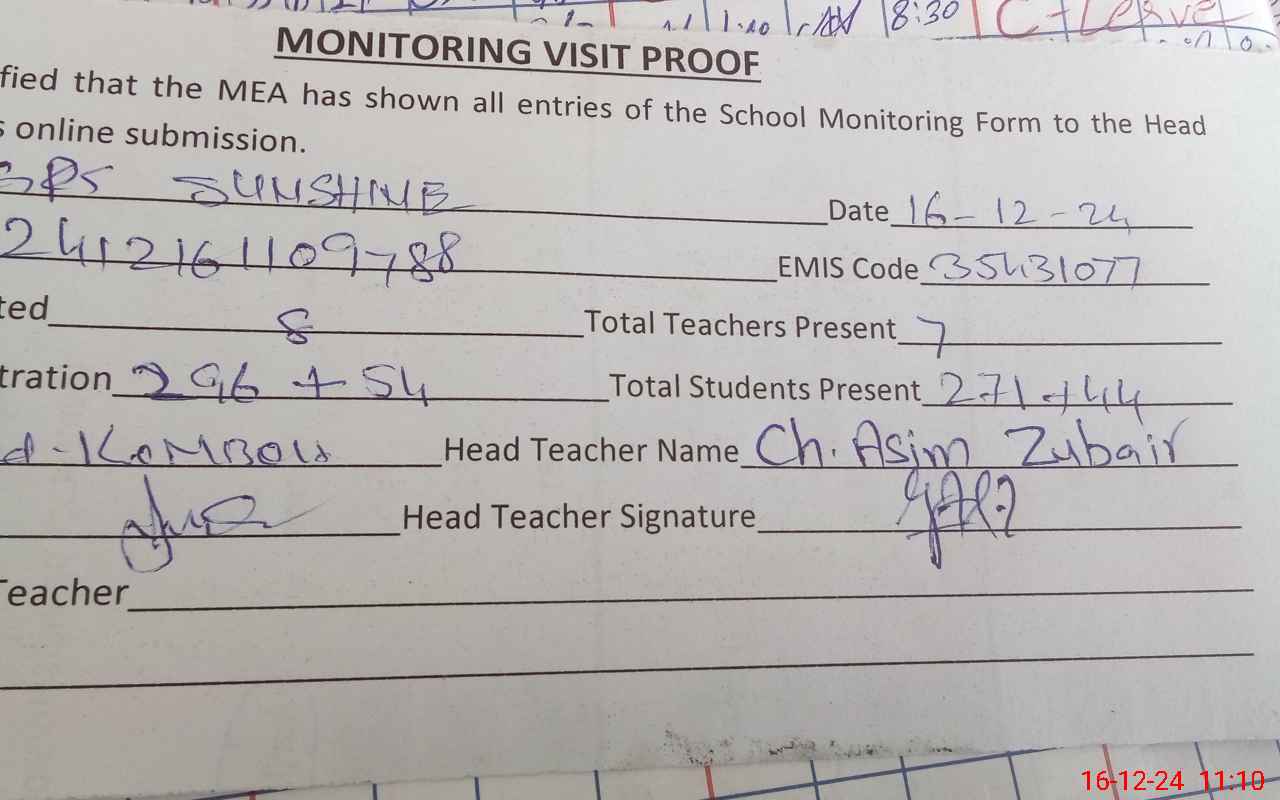 8:30 C-Leave
MONITORING VISIT PROOF
fied that the MEA has shown all entries of the School Monitoring Form to the Head
s online submission.
GPS SUNSHINE Date 16-12-24
2412161109788 EMIS Code 35431077
ted 8 Total Teachers Present 7
tration 296 + 54 Total Students Present 271+44
d. KAMBOH Head Teacher Name Ch. Asim Zubair
Head Teacher Signature
Teacher
16-12-24 11:10